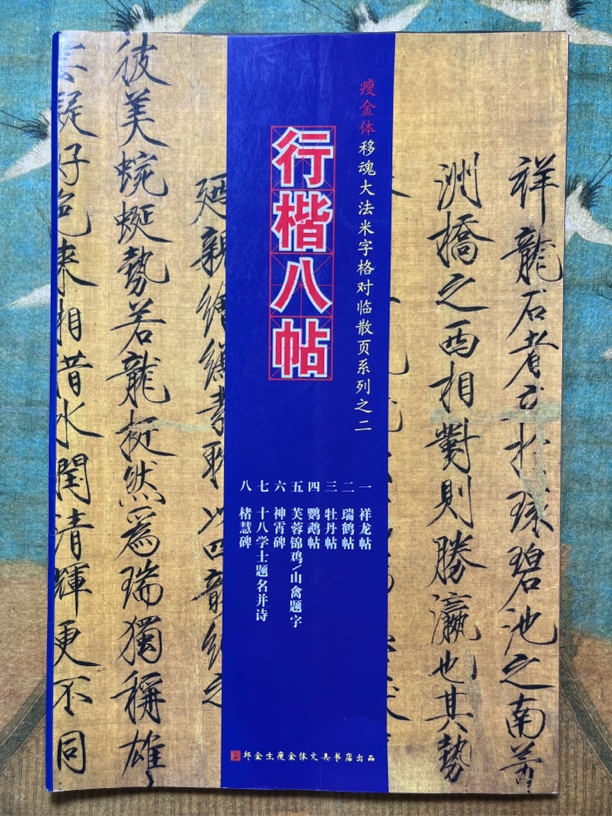 祥龍石者立於環碧池之南芳
洲橋之西相對則勝瀛也其勢
瘦金体移魂大法米字格对临散页系列之二
行楷八帖
一 祥龙帖
二 瑞鹤帖
三 牡丹帖
四 鹦鹉帖
五 芙蓉锦鸡/山禽题字
六 神霄碑
七 十八学士题名并诗
八 楮慧碑
邱金生瘦金体文具书店出品
彼美蜿蜒勢若龍挺然為瑞獨稱雄
雲凝好色來相借水潤清輝更不同